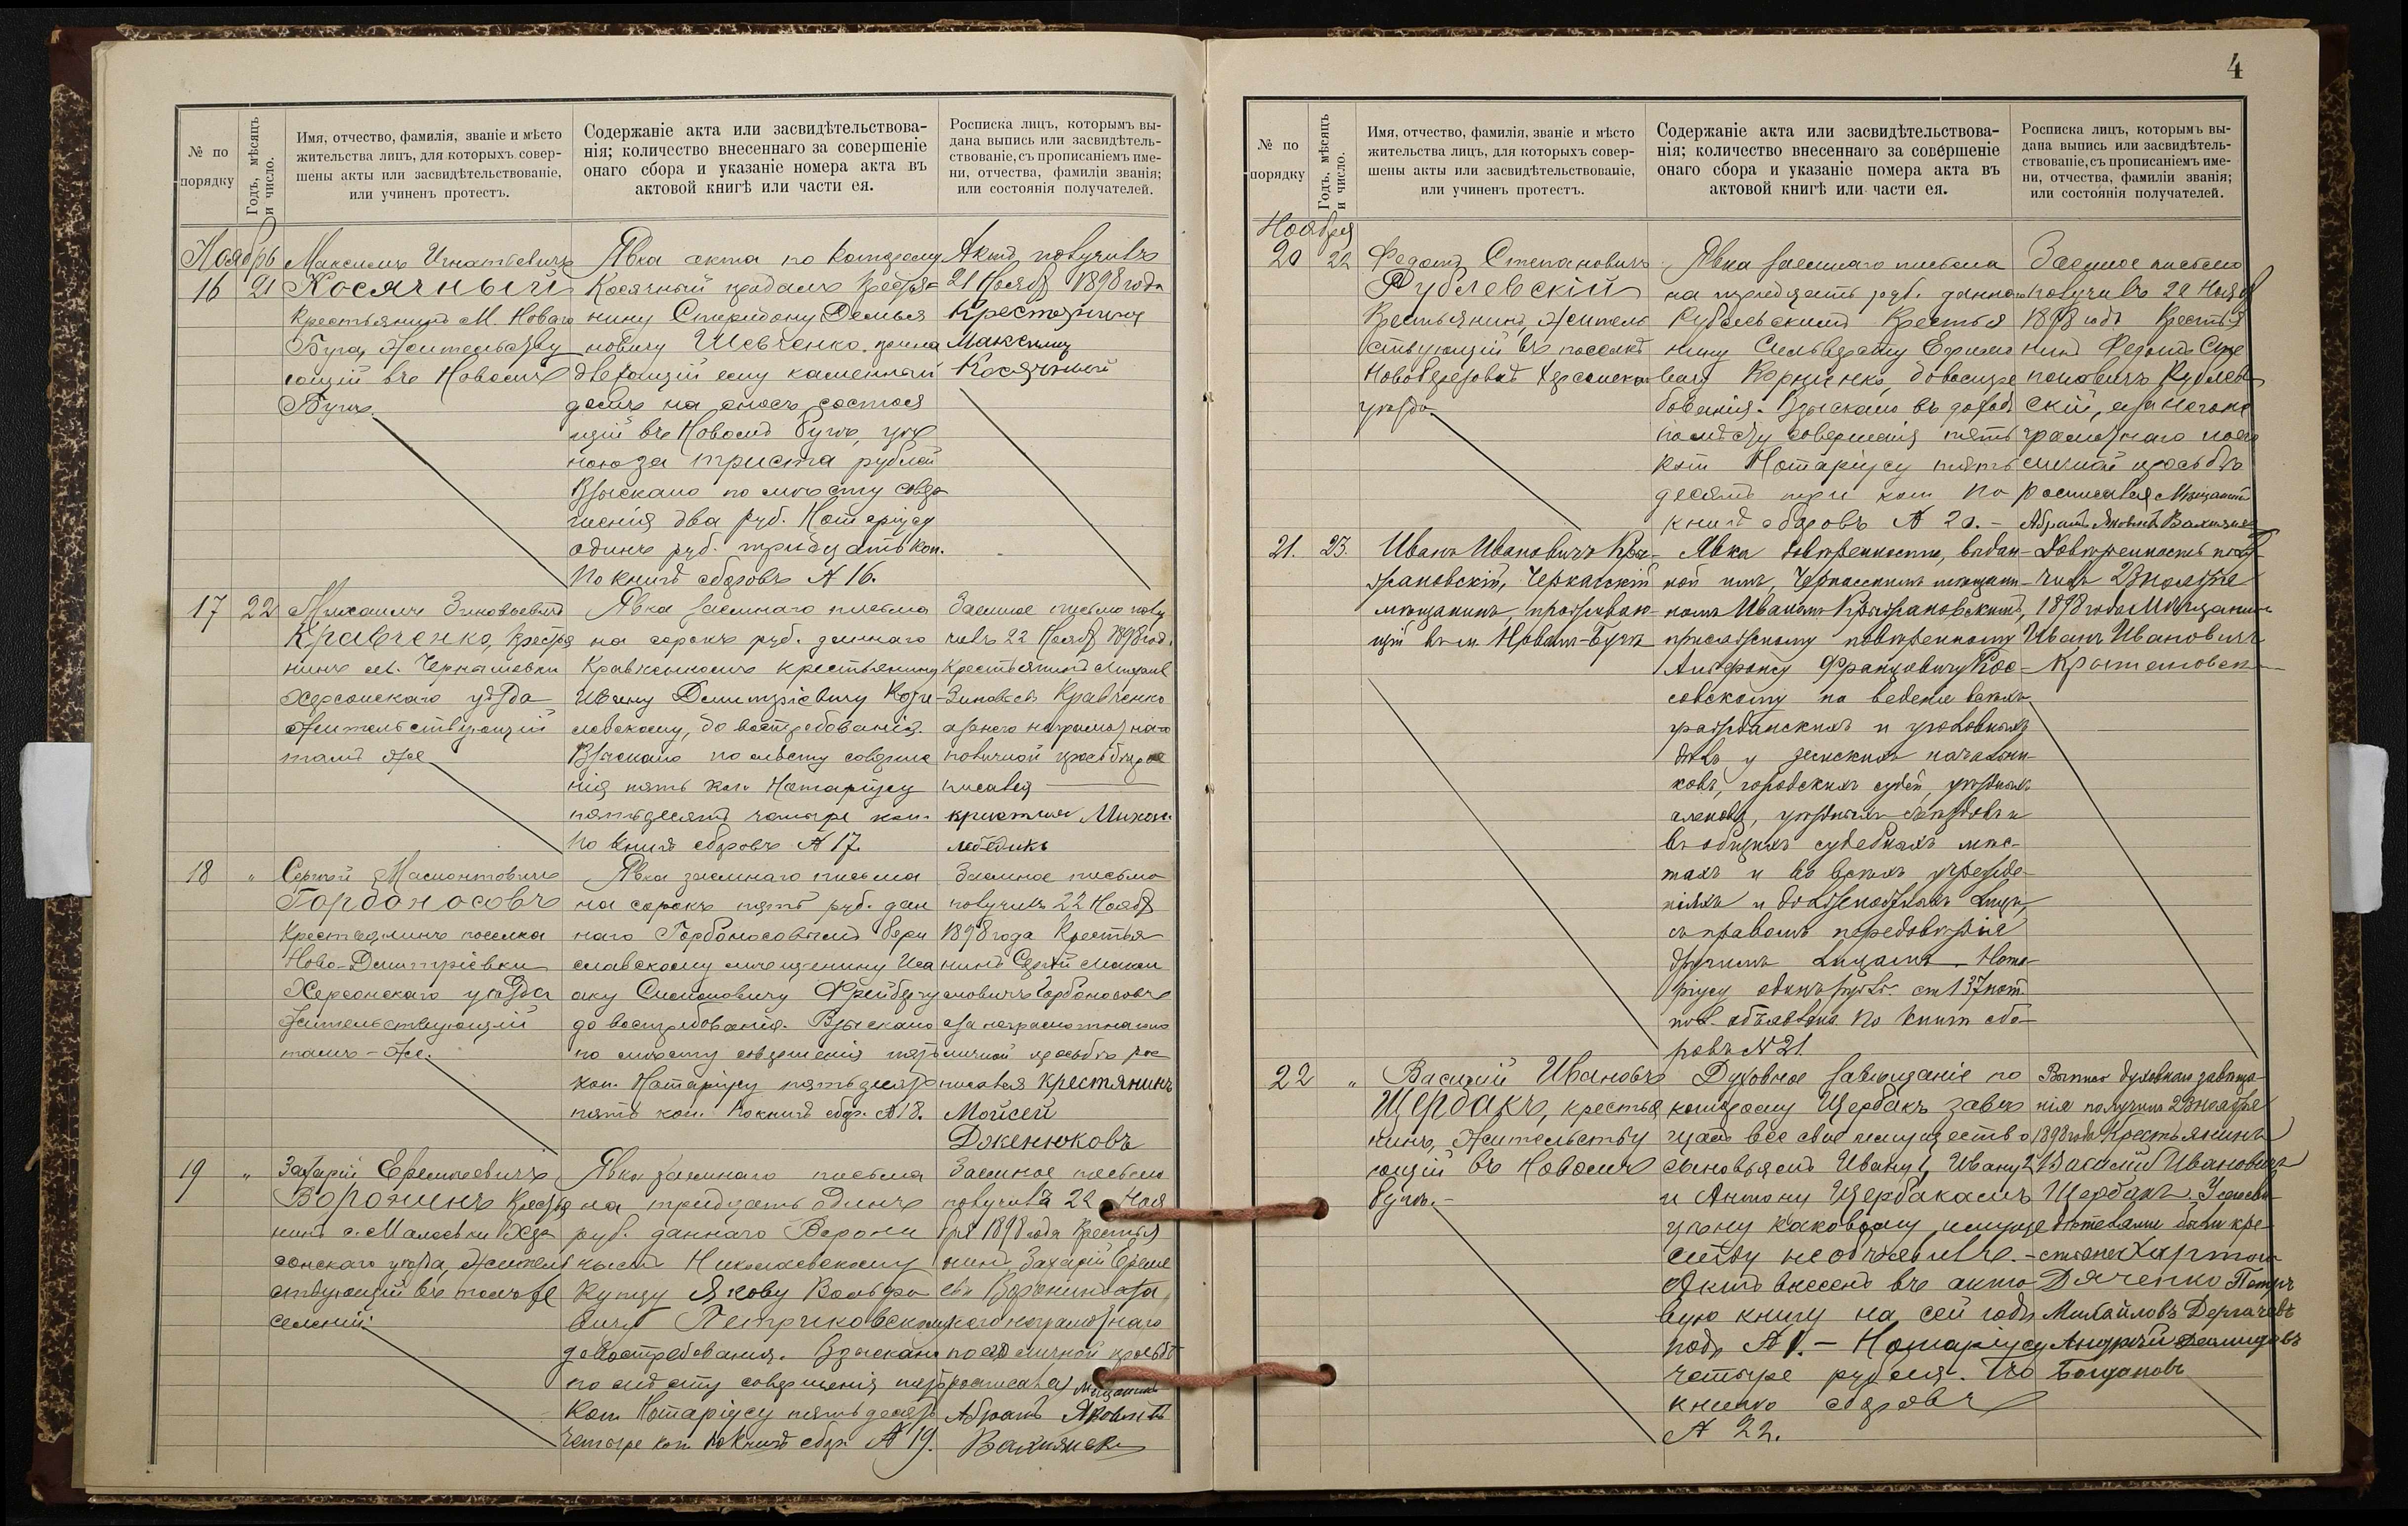 4
№ по
порядку
Годъ, мѣсяцъ
и число.
Имя, отчество, фамилія, званіе и мѣсто
жительства лицъ, для которыхъ совер-
шены акты или засвидѣтельствованіе,
или учиненъ протестъ.
Содержаніе акта или засвидѣтельствова-
нія; количество внесеннаго за совершеніе
онаго сбора и указаніе номера акта въ
актовой книгѣ или части ея.
Росписка лицъ, которымъ вы-
дана выпись или засвидѣтель-
ствованіе, съ прописаніемъ име-
ни, отчества, фамиліи званія;
или состоянія получателей.
Ноябрь
16
21
Максимъ Игнатьевичъ
Косячный
Крестьянинъ М. Новаго
Буга, Жительству
ющій въ Новомъ
Бугѣ
Явка акта по которому
Косячный продалъ Крестья
нину Спиридону Демья
новичу Шевченко прина
длежащій ему каменный
домъ на сносъ состоя
щій въ Новомъ Бугѣ, цѣ
ною за триста рублей
Взыскано по мѣсту совер
шенія два руб. Нотаріусу
одинъ руб. тридцать коп.
По книгѣ сборовъ № 16.
Актъ получилъ
21 Ноября 1898 года
Крестьянинъ
Максимъ
Косячный
17
22
Михаилъ Зиновьевичъ
Кравченко, Крестья
нинъ
Херсонскаго уѣзда
Жительствующій
тамъ же
Явка заемнаго письма
на сорокъ руб. даннаго
Кравченкомъ крестьянину
Ивану Димитріевичу
до востребованія.
Взыскано по мѣсту соверше
нія пять коп. Нотаріусу
пятьдесятъ четыре коп.
По книгѣ сборовъ № 17.
Заемное письмо полу
чилъ 22 Ноября 1898 год.
Крестьянинъ Михаилъ
Зиновьевъ Кравченко
а за него неграмотнаго
по личной просьбѣ рос
писался
18
"
Сергѣй
Горбоносовъ
Крестьянинъ поселка
Ново-Димитріевки
Херсонскаго уѣзда
Жительствующій
тамъ-же.
Явка заемнаго письма
на сорокъ пять руб. дан
наго Горбоносовымъ Бери
славскому мѣщанину Иса
аку Симоновичу Фрейбергу
до востребованія. Взыскано
по мѣсту совершенія пять
коп. Нотаріусу пятьдесятъ
пять коп. По книгѣ сбор. № 18.
Заемное письмо
получилъ 22 Ноября
1898 года Крестья
нинъ Сергѣй
Горбоносовъ
а за неграмотнаго
личной просьбѣ рос
писался крестянинъ
Мойсей
Дженюковъ
19
"
Захарій Еремѣевичъ
Воронинъ Крестья
нинъ с. Малѣевки Хер
сонскаго уѣзда, жительс
ствующій въ томъ же
селеніи.
Явка заемнаго письма
на тридцать одинъ
руб. даннаго Ворони
нымъ Николаевскому
Купцу Якову Вольфо
вичу Петриковскому
до востребованія. Взыскано
по мѣсту совершенія пять
коп. Нотаріусу пятьдесятъ
четыре коп. По книгѣ сбор. № 19.
Заемное письмо
получилъ 22 Ноя
бря 1898 года Крестья
нинъ Захарій Ереме
евъ Воронинъ а за
него неграмотнаго
по его личной просьбѣ
росписался мѣщанинъ
Абрамъ Яковлевъ
№ по
порядку
Годъ, мѣсяцъ
и число.
Имя, отчество, фамилія, званіе и мѣсто
жительства лицъ, для которыхъ совер-
шены акты или засвидѣтельствованіе,
или учиненъ протестъ.
Содержаніе акта или засвидѣтельствова-
нія; количество внесеннаго за совершеніе
онаго сбора и указаніе номера акта въ
актовой книгѣ или части ея.
Росписка лицъ, которымъ вы-
дана выпись или засвидѣтель-
ствованіе, съ прописаніемъ име-
ни, отчества, фамиліи званія;
или состоянія получателей.
Ноября
20
22
Федотъ Степановичъ
Рублевскій
Крестьянинъ, Житель
ствующій въ поселкѣ
Херсонскаго
уѣзда
Явка заемнаго письма
на руб. даннаго
Рублевскимъ Крестья
нину Сильвестру Ефимо
вичу Корниенко, до востре
бованія. Взыскано въ доходъ
по мѣсту совершенія пять
коп. Нотаріусу пять
десятъ три коп. По
книгѣ сборовъ № 20.-
Заемное письмо
получилъ 22 Ноября
1898 года Крестья
нинъ Федотъ Сте
пановичъ Рублев
скій, а за него не
грамотнаго по его
личной просьбѣ
росписался Мѣщанинъ
Абрамъ Яковлевъ
21.
23.
Иванъ Ивановичъ
Черкасскій
мѣщанинъ, проживаю-
щій въ м. Новомъ-Бугѣ
Явка довѣренности, выдан-
ной имъ, Черкасскимъ мѣщани-
номъ Иваномъ
присяжному повѣренному
Альфонсу Францовичу Кос-
совскому на веденіе всѣхъ
гражданскихъ и уголовныхъ
дѣлъ у земскихъ начальни-
ковъ, городскихъ судей, уѣздныхъ
членовъ, уѣздныхъ съѣздовъ и
въ общихъ судебныхъ мѣс-
тахъ и во всѣхъ учрежде-
ніяхъ и должностныхъ лицъ,
съ правомъ передовѣрія
другимъ лицамъ. Нота-
ріусу одинъ рубль. ст 137 нот
пол. объявлена. По книгѣ сбо-
ровъ № 21.
Довѣренность полу-
чилъ 23 ноября
1898 года Мѣщанинъ
Иванъ Ивановичъ
22
"
Василій Ивановъ
Щербакъ, крестья
нинъ, Жительству
ющій въ Новомъ
Бугѣ.-
Духовное завѣщаніе по
которому Щербакъ завѣ
щалъ все свое имущество
сыновьямъ Ивану 1, Ивану 2
и Антону Щербакамъ
цѣну каковому имуще
ству не объявилъ.-
Актъ внесенъ въ акто
вую книгу на сей годъ
подъ № 1.- Нотаріусу
четыре рубля. По
книгѣ сборовъ
№ 22.
Выпись духовнаго завѣща-
нія получилъ 23 ноября
1898 года крестьянинъ
Василій Ивановичъ
Щербакъ.
были кре-
стьяне
Дяченко Петръ
Михайловъ Дергачевъ
Андрей Демидовъ
Богдановъ